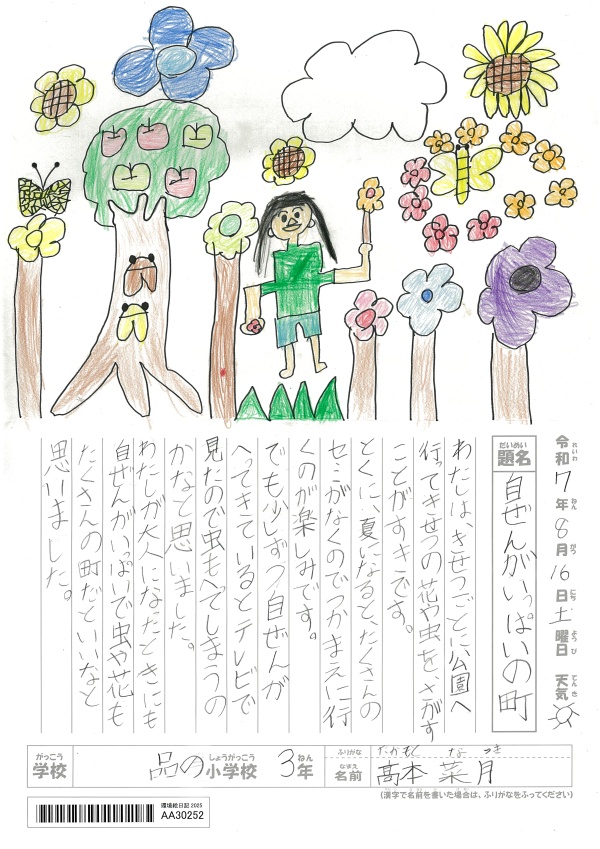 令和7年8月16日土曜日 天気
れいわ ねん がつ にち ようび てんき
だいめい
題名 自ぜんがいっぱいの町
わたしは、きせつごとに公園へ
行ってきせつの花や虫を、さがす
ことがすきです。
とくに、夏になると、たくさんの
セミがなくのでつかまえに行
くのが楽しみです。
でも少しずつ自ぜんが
へってきているとテレビで
見たので虫もへてしまうの
かなと思いました。
わたしが大人になたときにも
自ぜんがいっぱいで虫や花も
たくさんの町だといいなと
思いました。
がっこう しょうがっこう ねん
学校 品の小学校 3年
ふりがな たかもく な つき
なまえ
名前 髙本 菜月
(漢字で名前を書いた場合は、ふりがなをふってください)
環境絵日記 2025
AA30252